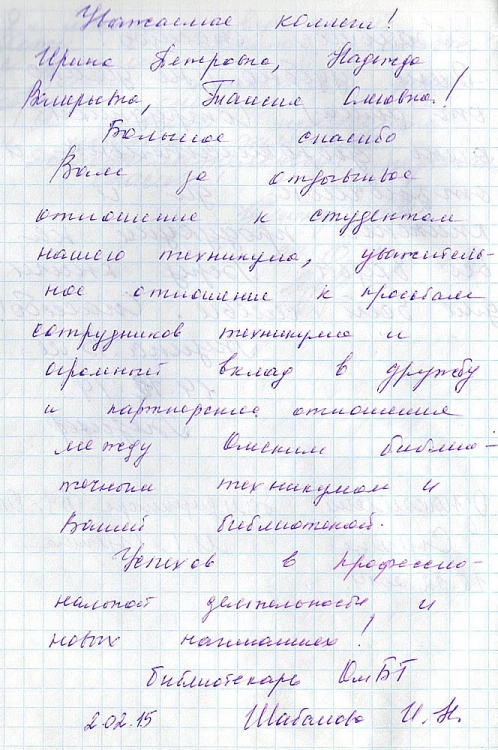 Уважаемые коллеги!
Ирина Петровна, Надежда
Валерьевна, Таисия Олеговна!
Большое спасибо
Вам за отзывчивое
отношение к студентам
нашего техникума, уважитель-
ное отношение к просьбам
сотрудников техникума и
огромный вклад в дружбу
и партнерские отношения
между Омским библио-
течным техникумом и
Вашей библиотекой.
Успехов в профессио-
нальной деятельности и
новых начинаниях!
библиотекарь ОмБТ
2.02.15 Шабанова И.Н.